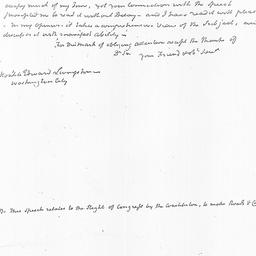 occupy much of my time, yet your connection with the Speech
prompted me to read it without Delay - and I have read it with pleas
- In my opinion it takes a comprehensive View of the Subject, and
discusses it with manifest Ability -
For this mark of obliging attention accept the Thanks of
Dr Sir your Friend & obt Servt
Edward Livingston
Washington City
This Speech relates to the Right of Congress by the Constitution, to make Roads &